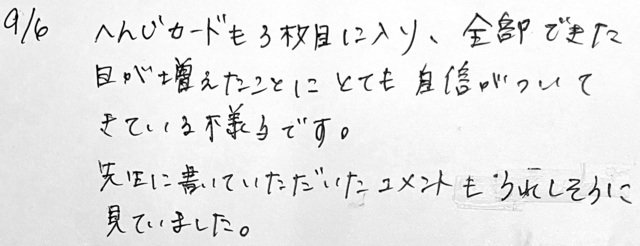 9/6 へんじカードも3枚目に入り、全部できた
日が増えたことにとても自信がついて
きている様子です。
先生に書いていただいたコメントもうれしそうに
見ていました。